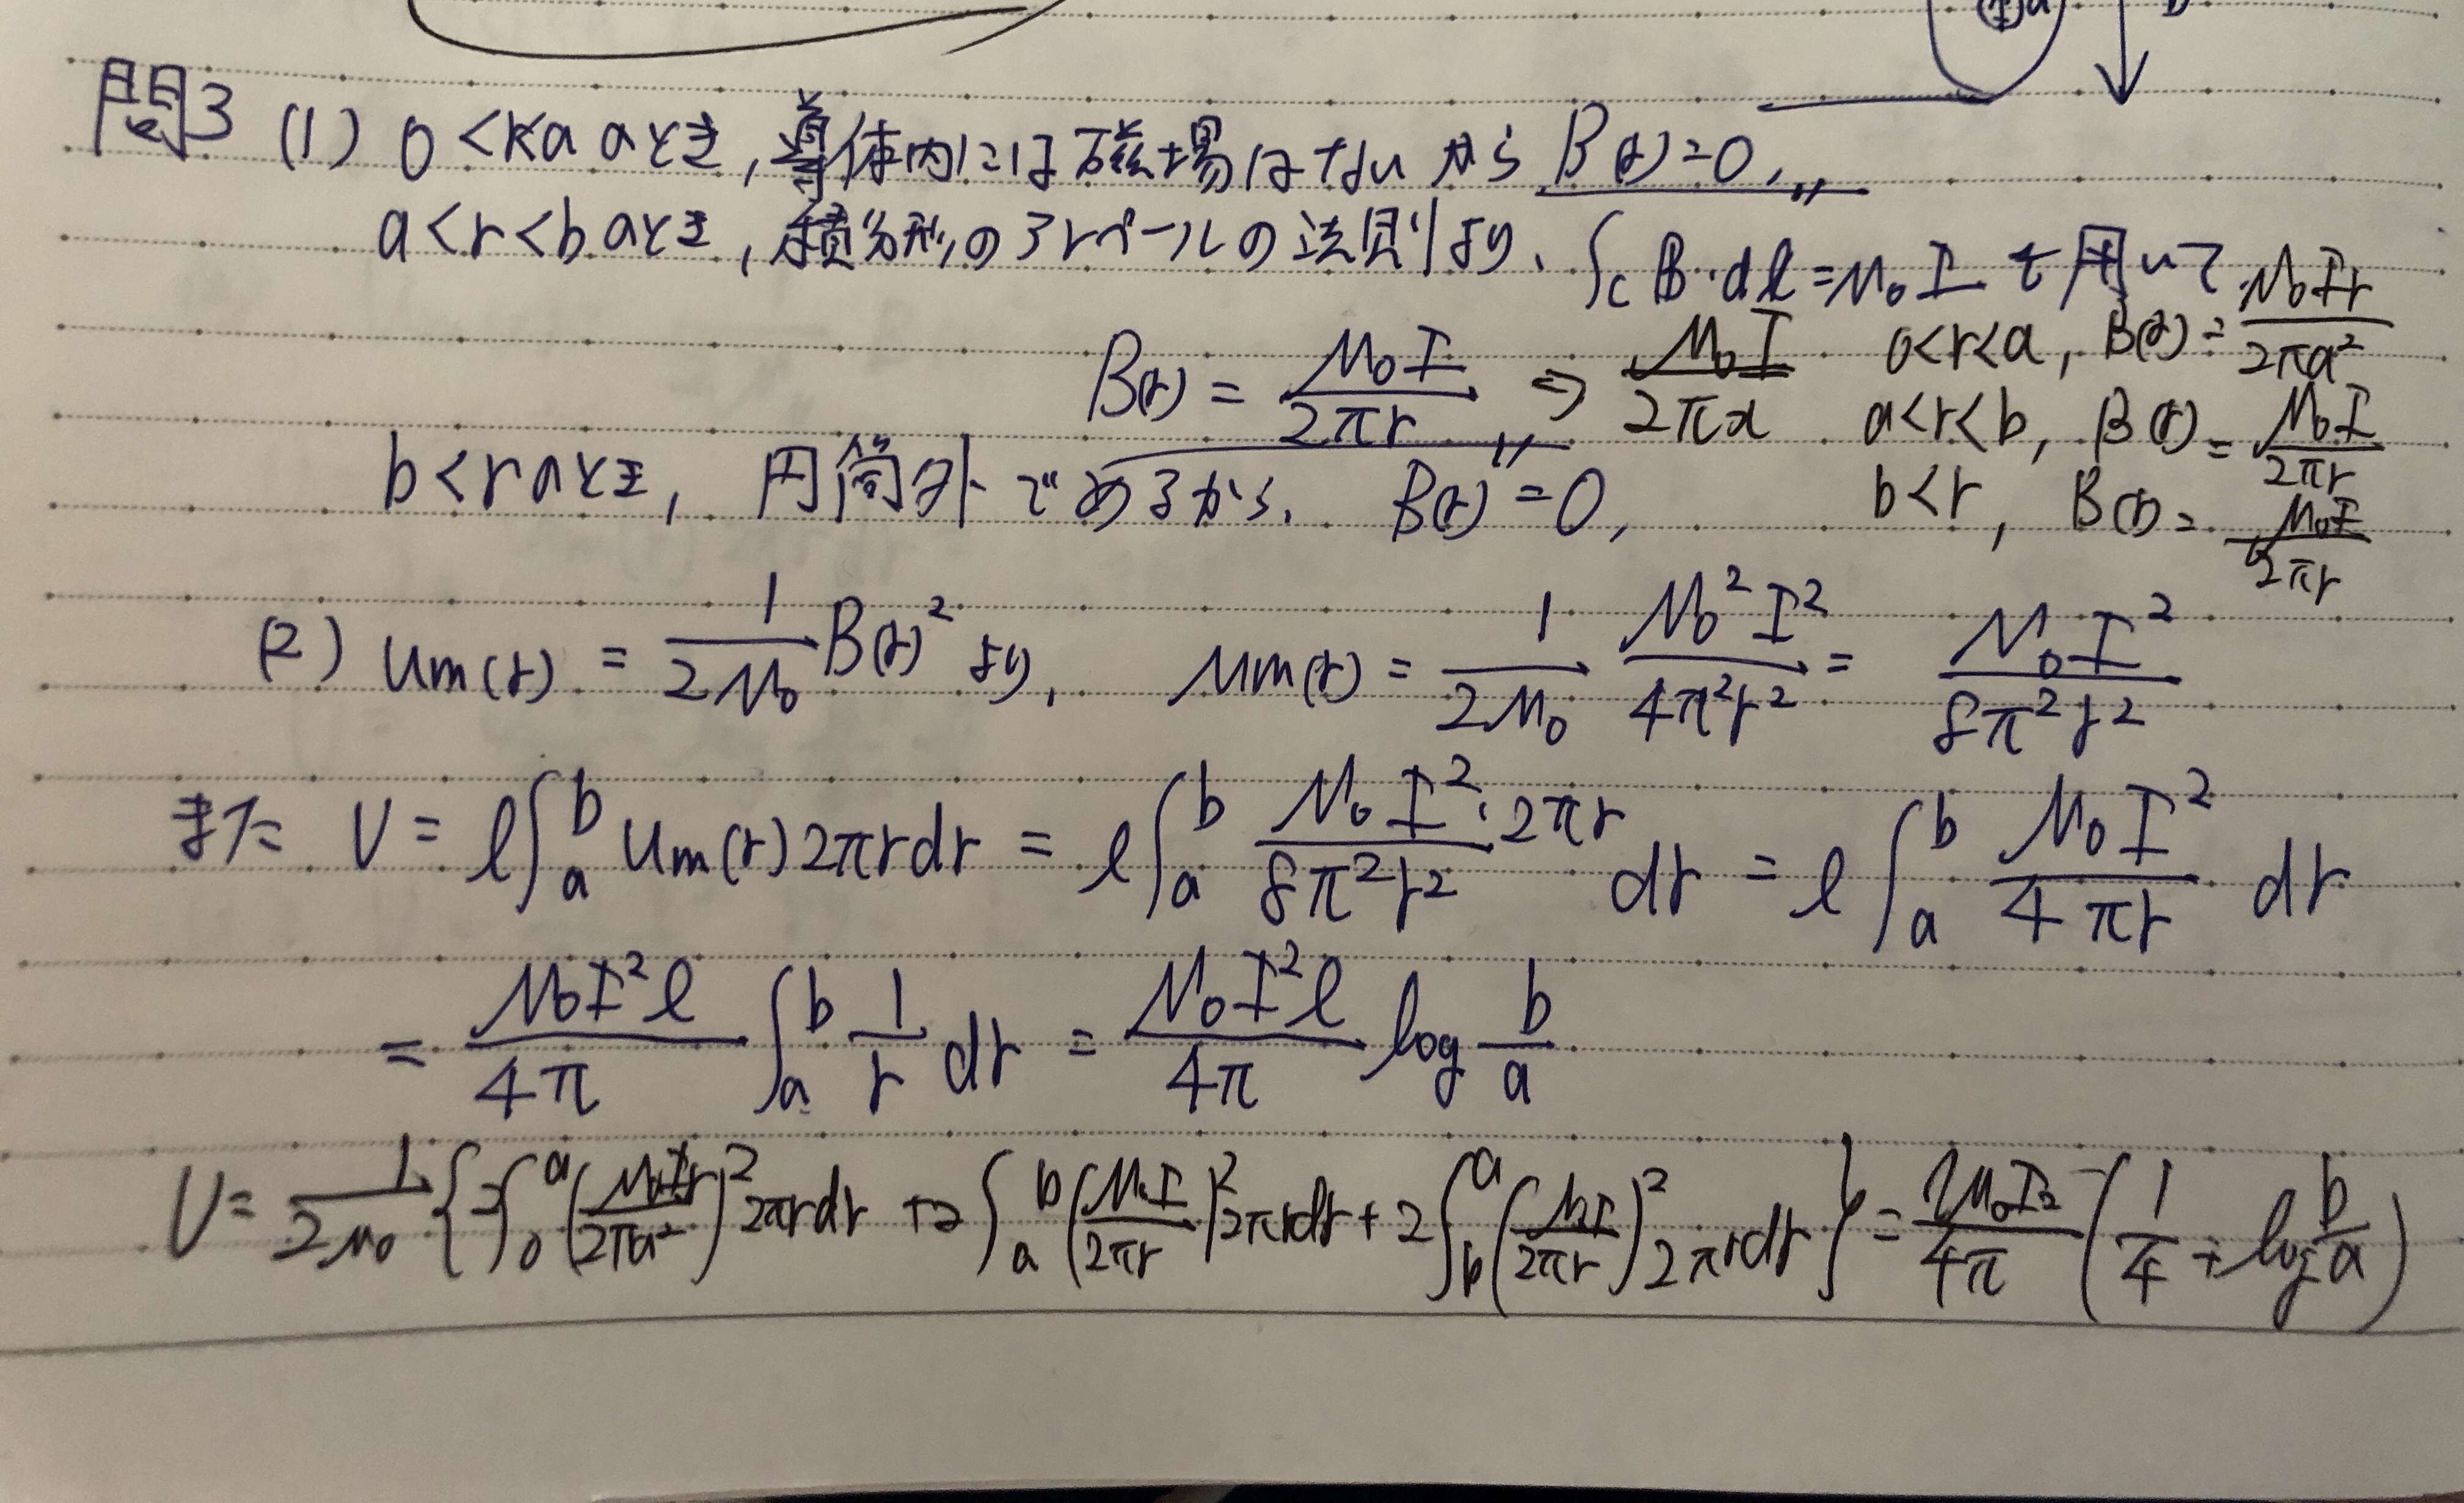 a b
問3 (1) 0<r<a のとき, 導体内には磁場はないから B(r)=0,
a<r<b のとき, 積分形のアンペールの法則より、 ∫_C B・dl = μ₀I を用いて
B(r) = μ₀I/2πr ⇒ μ₀I/2πa
0<r<a, B(r) = μ₀Ir/2πa²
a<r<b, B(r) = μ₀I/2πr
b<r, B(r) = μ₀I/2πr
b<r のとき, 円筒外であるから、 B(r) = 0,
(2) um(r) = 1/2μ₀ B(r)² より, um(r) = 1/2μ₀ μ₀²I²/4π²r² = μ₀I²/8π²r²
また U = l∫_a^b um(r)2πrdr = l∫_a^b μ₀I²/8π²r²・2πr dr = l∫_a^b μ₀I²/4πr dr
= μ₀I²l/4π ∫_a^b 1/r dr = μ₀I²l/4π log b/a
U = 1/2μ₀ {∫_0^a (μ₀Ir/2πa²)² 2πrdr + ∫_a^b (μ₀I/2πr)² 2πrdr + 2∫_b^a (μ₀I/2πr)² 2πrdr} = lμ₀I²/4π (1/4 + log b/a)